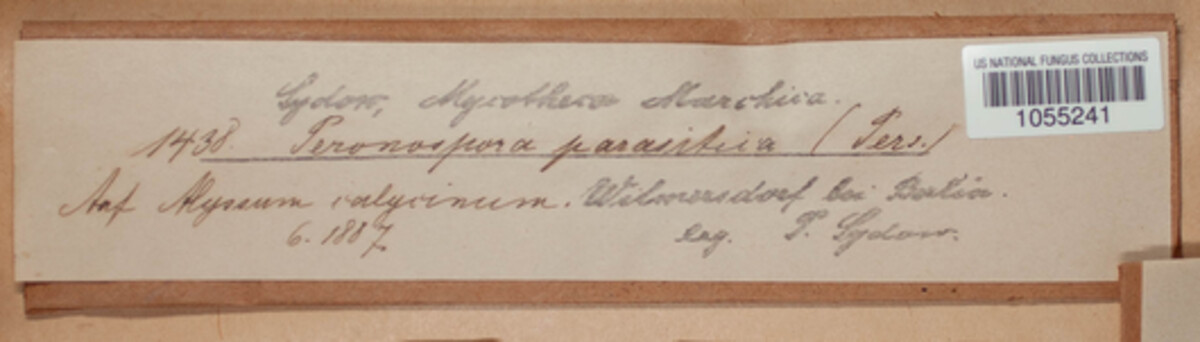 US NATIONAL FUNGUS COLLECTIONS
1055241
Sydow, Mycotheca Marchica.
1438. Peronospora parasitica (Pers.)
Auf Alyssum calycinum. Wilmersdorf bei Berlin.
6. 1887 leg. P. Sydow.